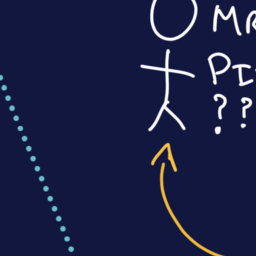 MR
PI
??